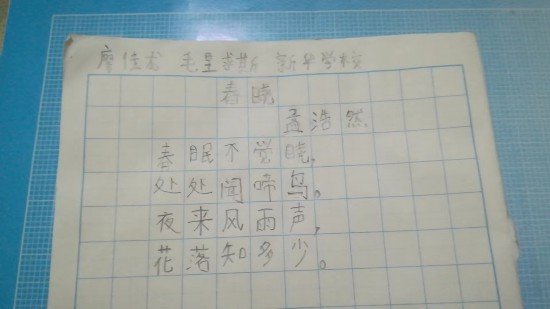 廖佳 毛里求斯 新华学校
春晓
孟浩然
春眠不觉晓,
处处闻啼鸟。
夜来风雨声,
花落知多少。